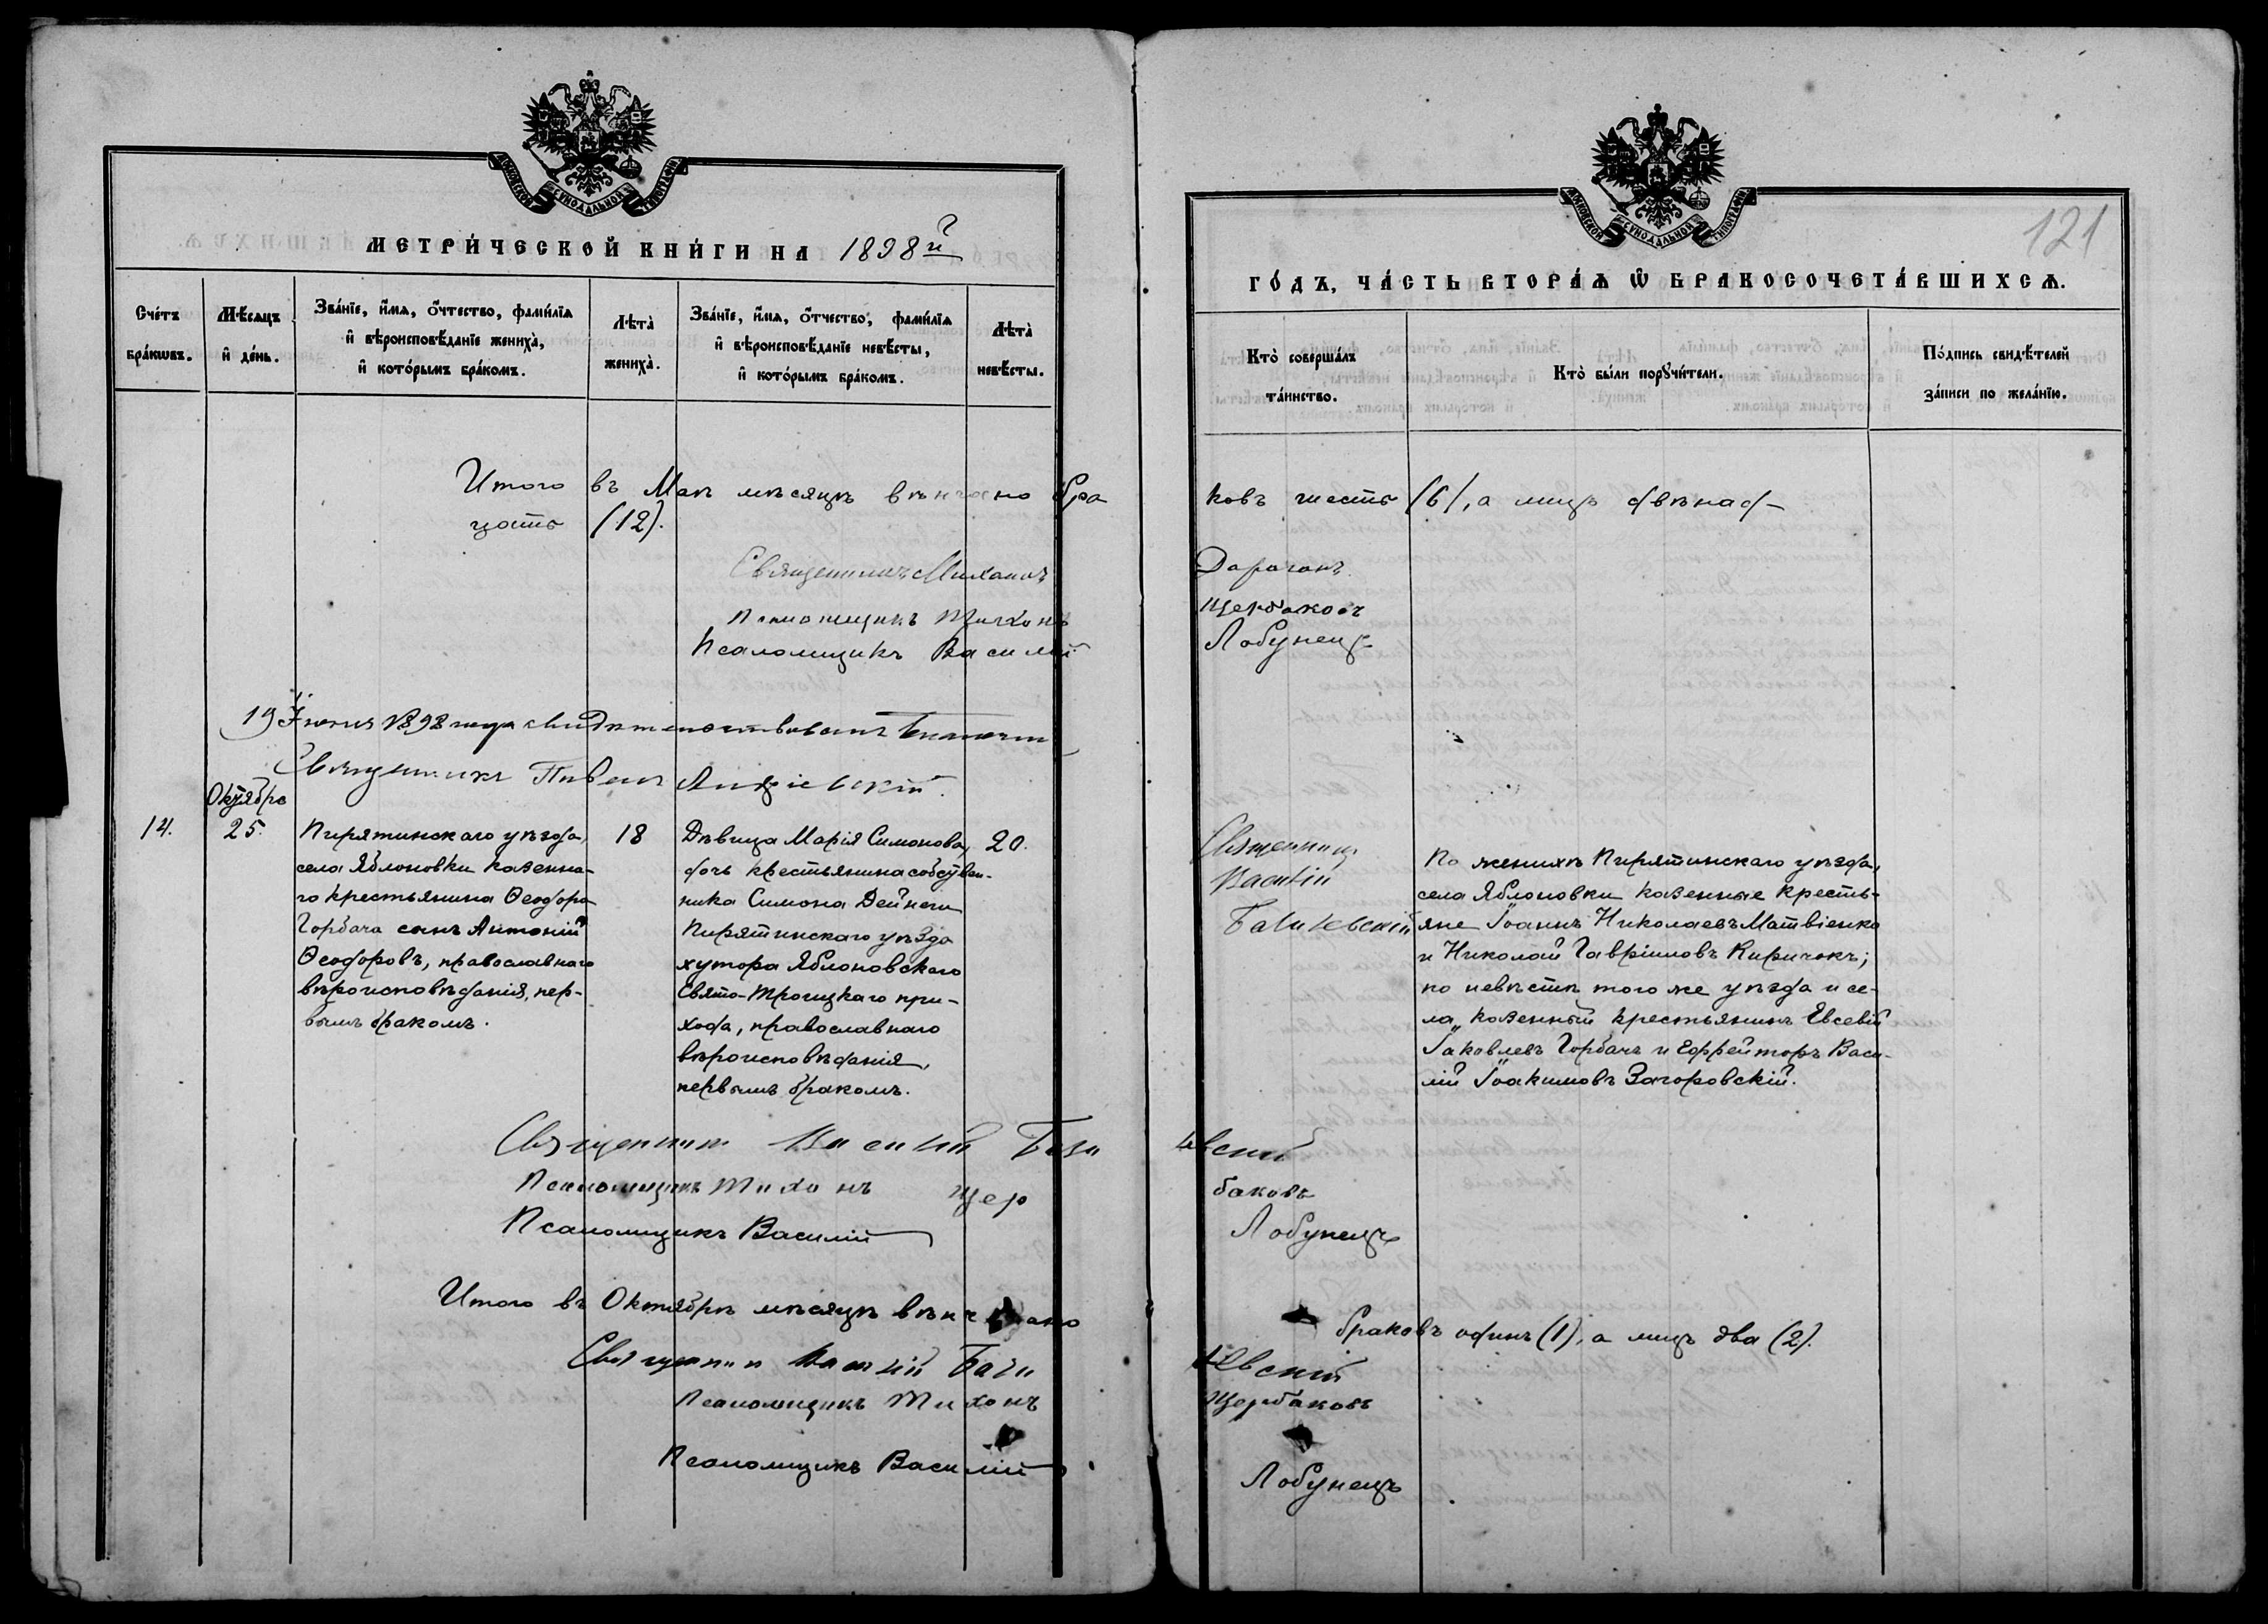 МОСКОВСКОЙ СѴНОДАЛЬНОЙ ТИПОГРАФІИ
МЕТРИ́ЧЕСКОЙ КНИ́ГИ НА 1898й
Сче́тъ бра́кѡвъ.
Мѣ́сяцъ и҆ де́нь.
Зва́нїе, и҆́мѧ, ѻ҆́тчество, фами́лїѧ
и҆ вѣроисповѣ́данїе жениха̀,
и҆ кото́рымъ бра́комъ.
Лѣ́та̀
жениха̀.
Зва́нїе, и҆́мѧ, ѻ҆́тчество, фами́лїѧ
и҆ вѣроисповѣ́данїе невѣ́сты,
и҆ кото́рымъ бра́комъ.
Лѣ́та̀
невѣ́сты.
Итого въ Маѣ мѣсяцѣ вѣнчано бра
цать (12).
Священникъ Михаилъ
Псаломщикъ Тихонъ
Псаломщикъ Василій
19 Іюня 1898 года свидѣтельствовалъ
Священникъ Павелъ
Октября
14.
25.
Пирятинскаго уѣзда,
села Яблоновки казенна-
го крестьянина Ѳеодора
Горбача сынъ Антоній
Ѳеодоровъ, православнаго
вѣроисповѣданія, пер-
вымъ бракомъ.
18
Дѣвица Марія Симонова,
дочь крестьянина собствен-
ника Симона Дейнеги
Пирятинскаго уѣзда
хутора Яблоновскаго
Свято-Троицкаго при-
хода, православнаго
вѣроисповѣданія,
первымъ бракомъ.
20.
Священникъ Василій Бази
Псаломщикъ Тихонъ Щер
Псаломщикъ Василій
Итого въ Октябрѣ мѣсяцѣ вѣнчано
Священникъ Василій Бази
Псаломщикъ Тихонъ
Псаломщикъ Василій
МОСКОВСКОЙ СѴНОДАЛЬНОЙ ТИПОГРАФІИ
121
ГО́ДЪ, ЧА́СТЬ ВТОРА́Ѧ Ѽ БРАКОСОЧЕТА́ВШИХСѦ.
Кто̀ соверша́лъ
та́инство.
Кто̀ бы́ли порꙋчи́тели.
По́дпись свидѣ́телей
за́писи по жела́нїю.
ковъ шесть (6), а лицъ двѣнад-
Дараганъ
Щербаковъ
Лобунецъ
Священникъ
Василій
Базилевскій
По женихѣ Пирятинскаго уѣзда,
села Яблоновки казенные кресть-
яне Іоаннъ Николаевъ Матвіенко
и Николай Гавріиловъ Киричокъ;
по невѣстѣ того же уѣзда и се-
ла, казенный крестьянинъ Евсевій
Іаковлевъ Горбачъ и Ефрейторъ Васи-
лій Іоакимовъ Загоровскій.
левскій
баковъ
Лобунецъ
браковъ одинъ (1), а лицъ два (2).
левскій
Щербаковъ
Лобунецъ